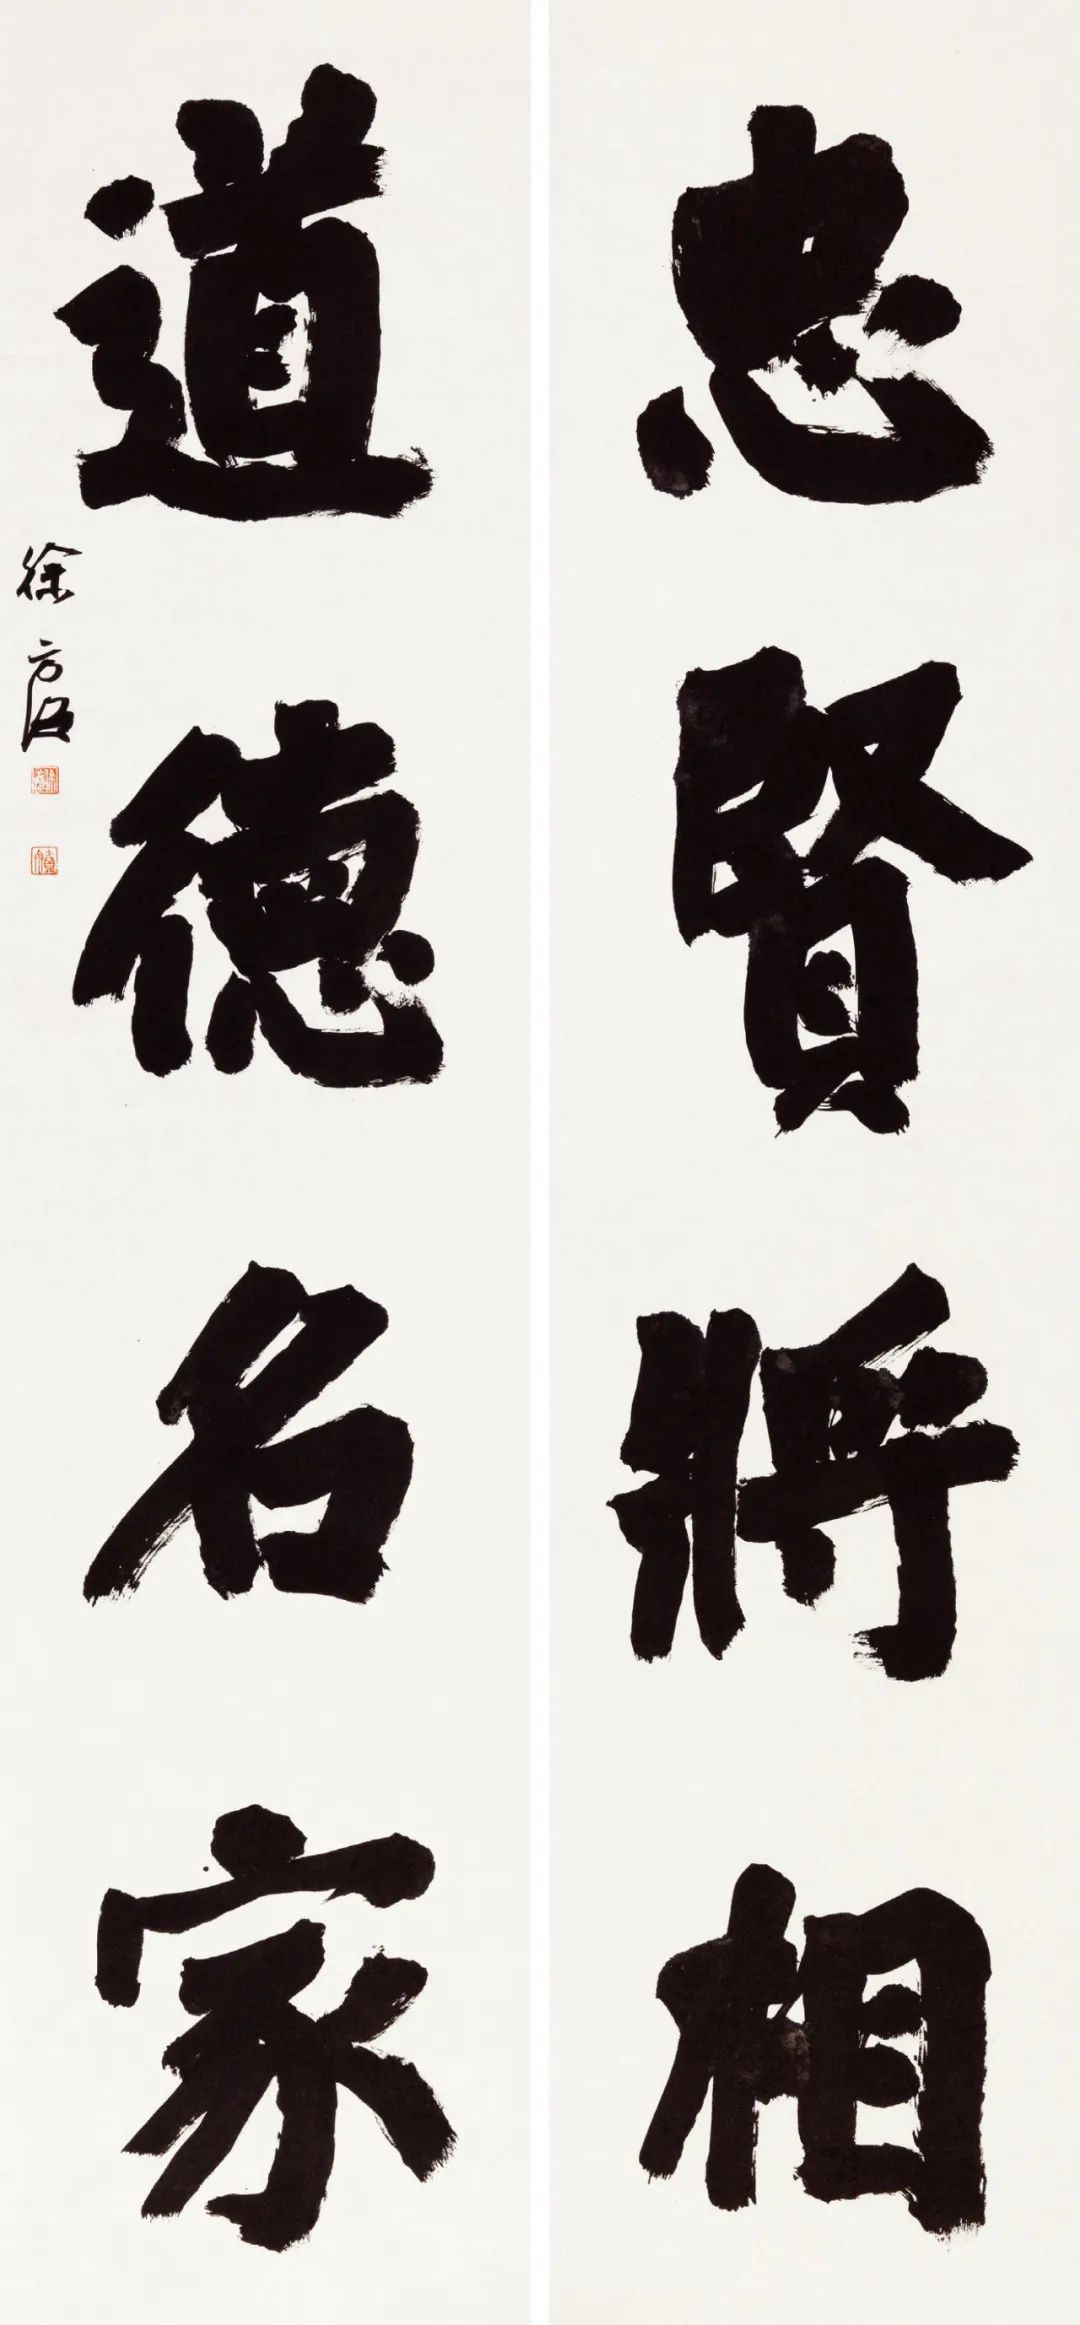 忠賢將相
道德名家
徐方濬